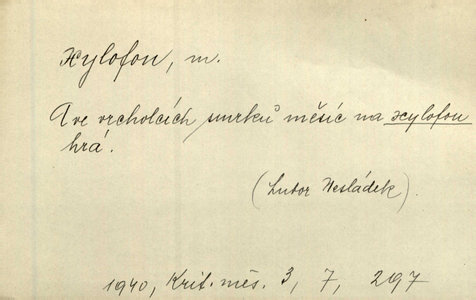 xylofon, m.
A ve vrcholcích smrků měsíc na xylofon
hrá.
(Lubor Nesládek).
1940, Krit. měs. 3, 7, 297